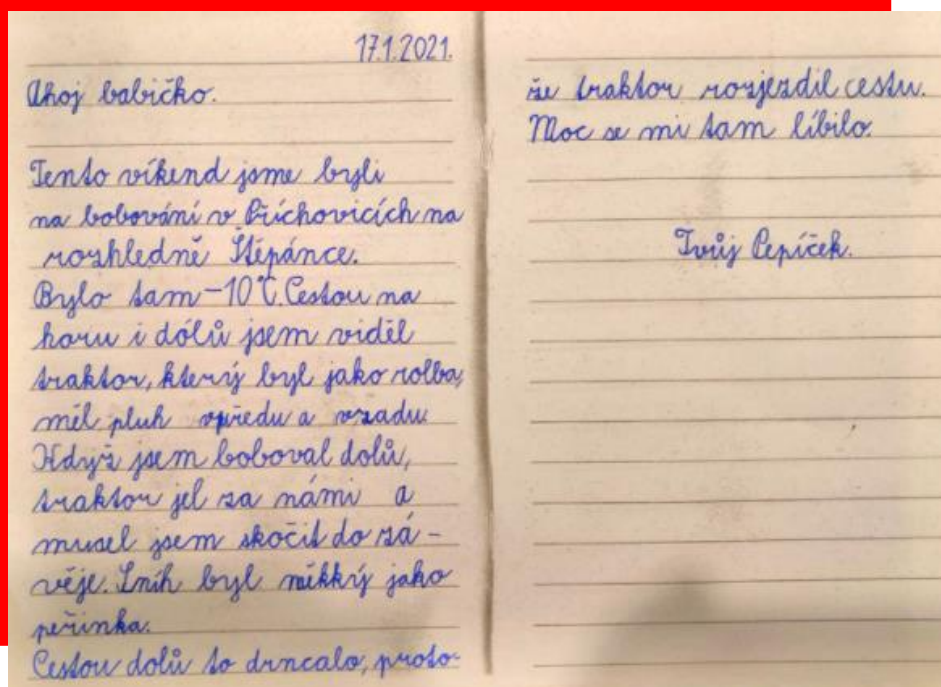 17.1.2021.
Ahoj babičko.
Tento víkend jsme byli
na bobování v Příchovicích na
rozhledně Štěpánce.
Bylo tam -10°C. Cestou na
horu i dólů jsem viděl
traktor, který byl jako rolba,
měl pluh vpředu a vzadu
Když jsem boboval dolů,
traktor jel za námi a
musel jsem skočit do zá-
věje. Sníh byl měkký jako
peřinka.
Cestou dolů to drncalo, proto-
že traktor rozjezdil cestu.
Moc se mi tam líbilo.
Tvůj Pepíček.